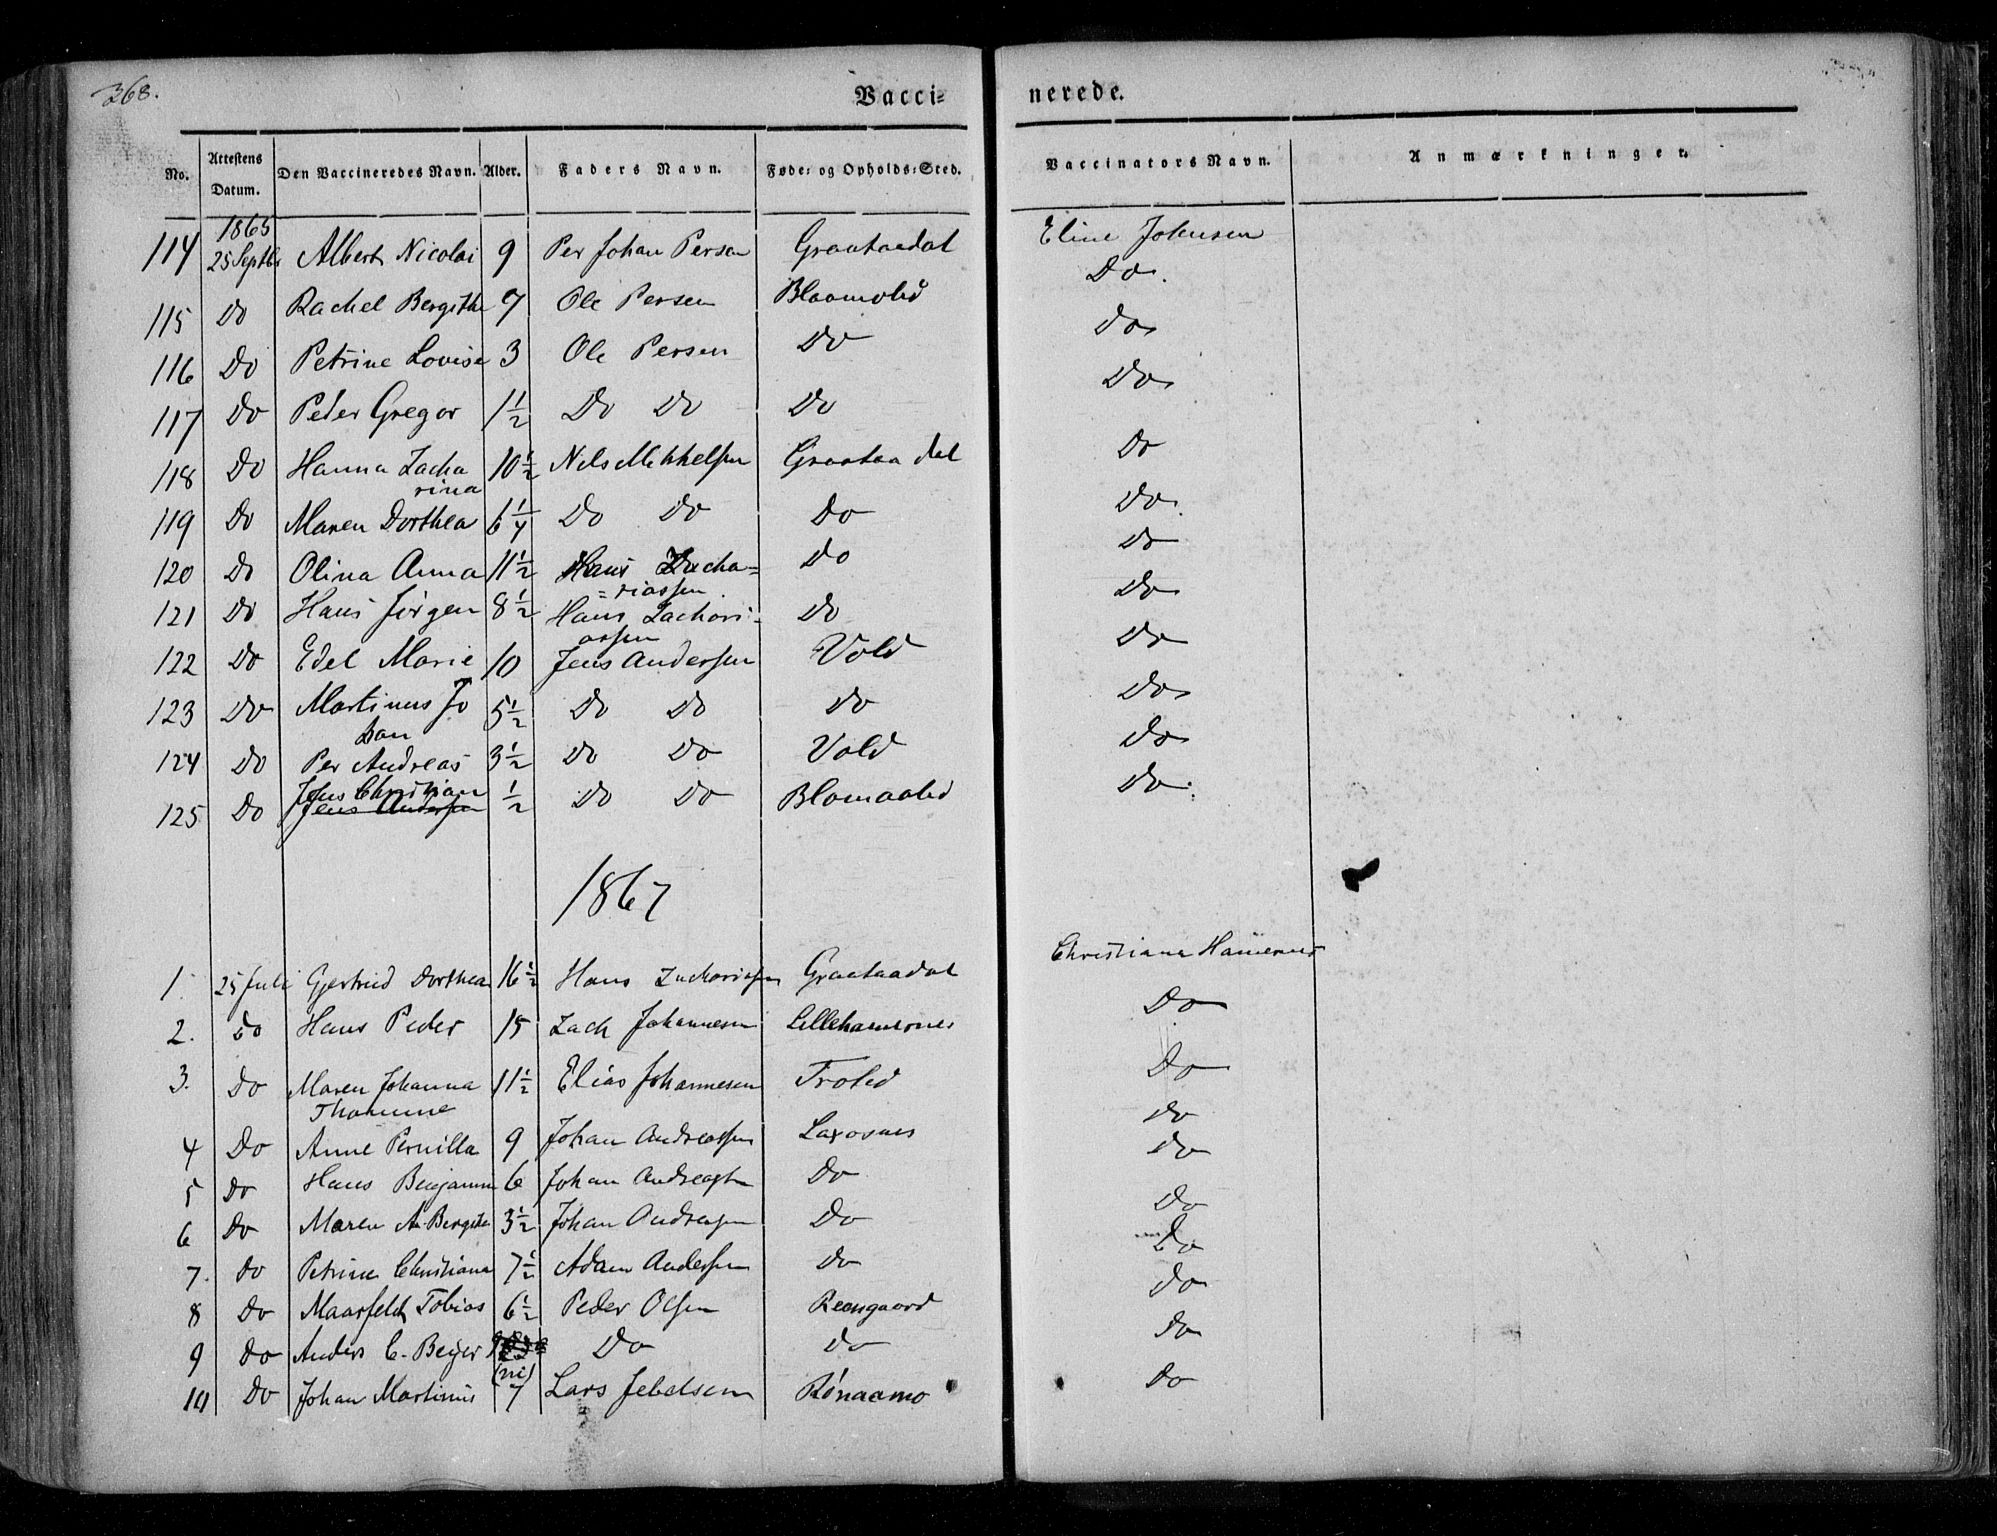 368.
Vacci= nerede.
No. Attestens Datum. Den Vaccineredes Navn. Alder. Faders Navn. Føde= og Opholds=Sted. Vaccinators Navn. Anmærkninger.
1865
114 25 Septbr Albert Nicolai 9 Per Johan Persen Graataadal Eline Johnsen
115 Do Rachel Bergithe 7 Ole Persen Blaamolid Do.
116 Do Petrine Lovise 3 Ole Persen Do Do
117 Do Peder Gregor 1 1/2 Do Do Do Do
118 Do Hanna Zacha 10 1/2 Nils Mikkelsen Graataadal Do
rina
119 Do Maren Dorthea 6 1/4 Do Do Do Do
120 Do Olina Anna 11 1/2 Hans Zacha= Do Do
=riassen
121 Do Hans Jørgen 8 1/2 Hans Zachari- Do Do
assen
122 Do Edel Marie 10 Jens Andersen Vold Do
123 Do Martinus Jo 5 1/2 Do Do Do Do
han
124 Do Per Andreas 3 1/2 Do Do Vold Do
Jens Christian
125 Do Jens Andersen 1/2 Do Do Blomaalid Do.
1867
1. 25 Juli Gjertrud Dorthea 16 1/2 Hans Zachariasen Graataadal Christiana
2. Do Hans Peder 15 Zach Johannesen Do
3. Do Maren Johanna 11 1/2 Elias Johannesen Trolid Do
Thomine
4 Do Anne Pernilla 9 Johan Andreassen Laxosnes Do
5 Do Hans Benjamin 6 Johan Andreassen Do Do
6 Do Maren A. Bergithe 3 1/2 Johan Andreasen Do Do
7. Do Petrine Christiana 7 1/2 Adam Andersen Do Do
8 Do Maarfeldt Tobias 6 1/2 Peder Olsen Reengaard Do
9 Do Anders C. Beyer 9 Do Do Do
(ni)
10 Do Johan Martinus 7 Lars Jebelsen Rönaamo Do